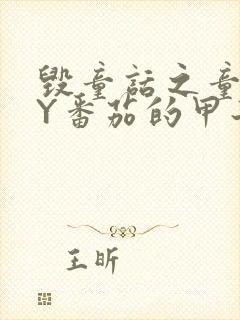 毁童话之童
Y番茄的甲
王昕